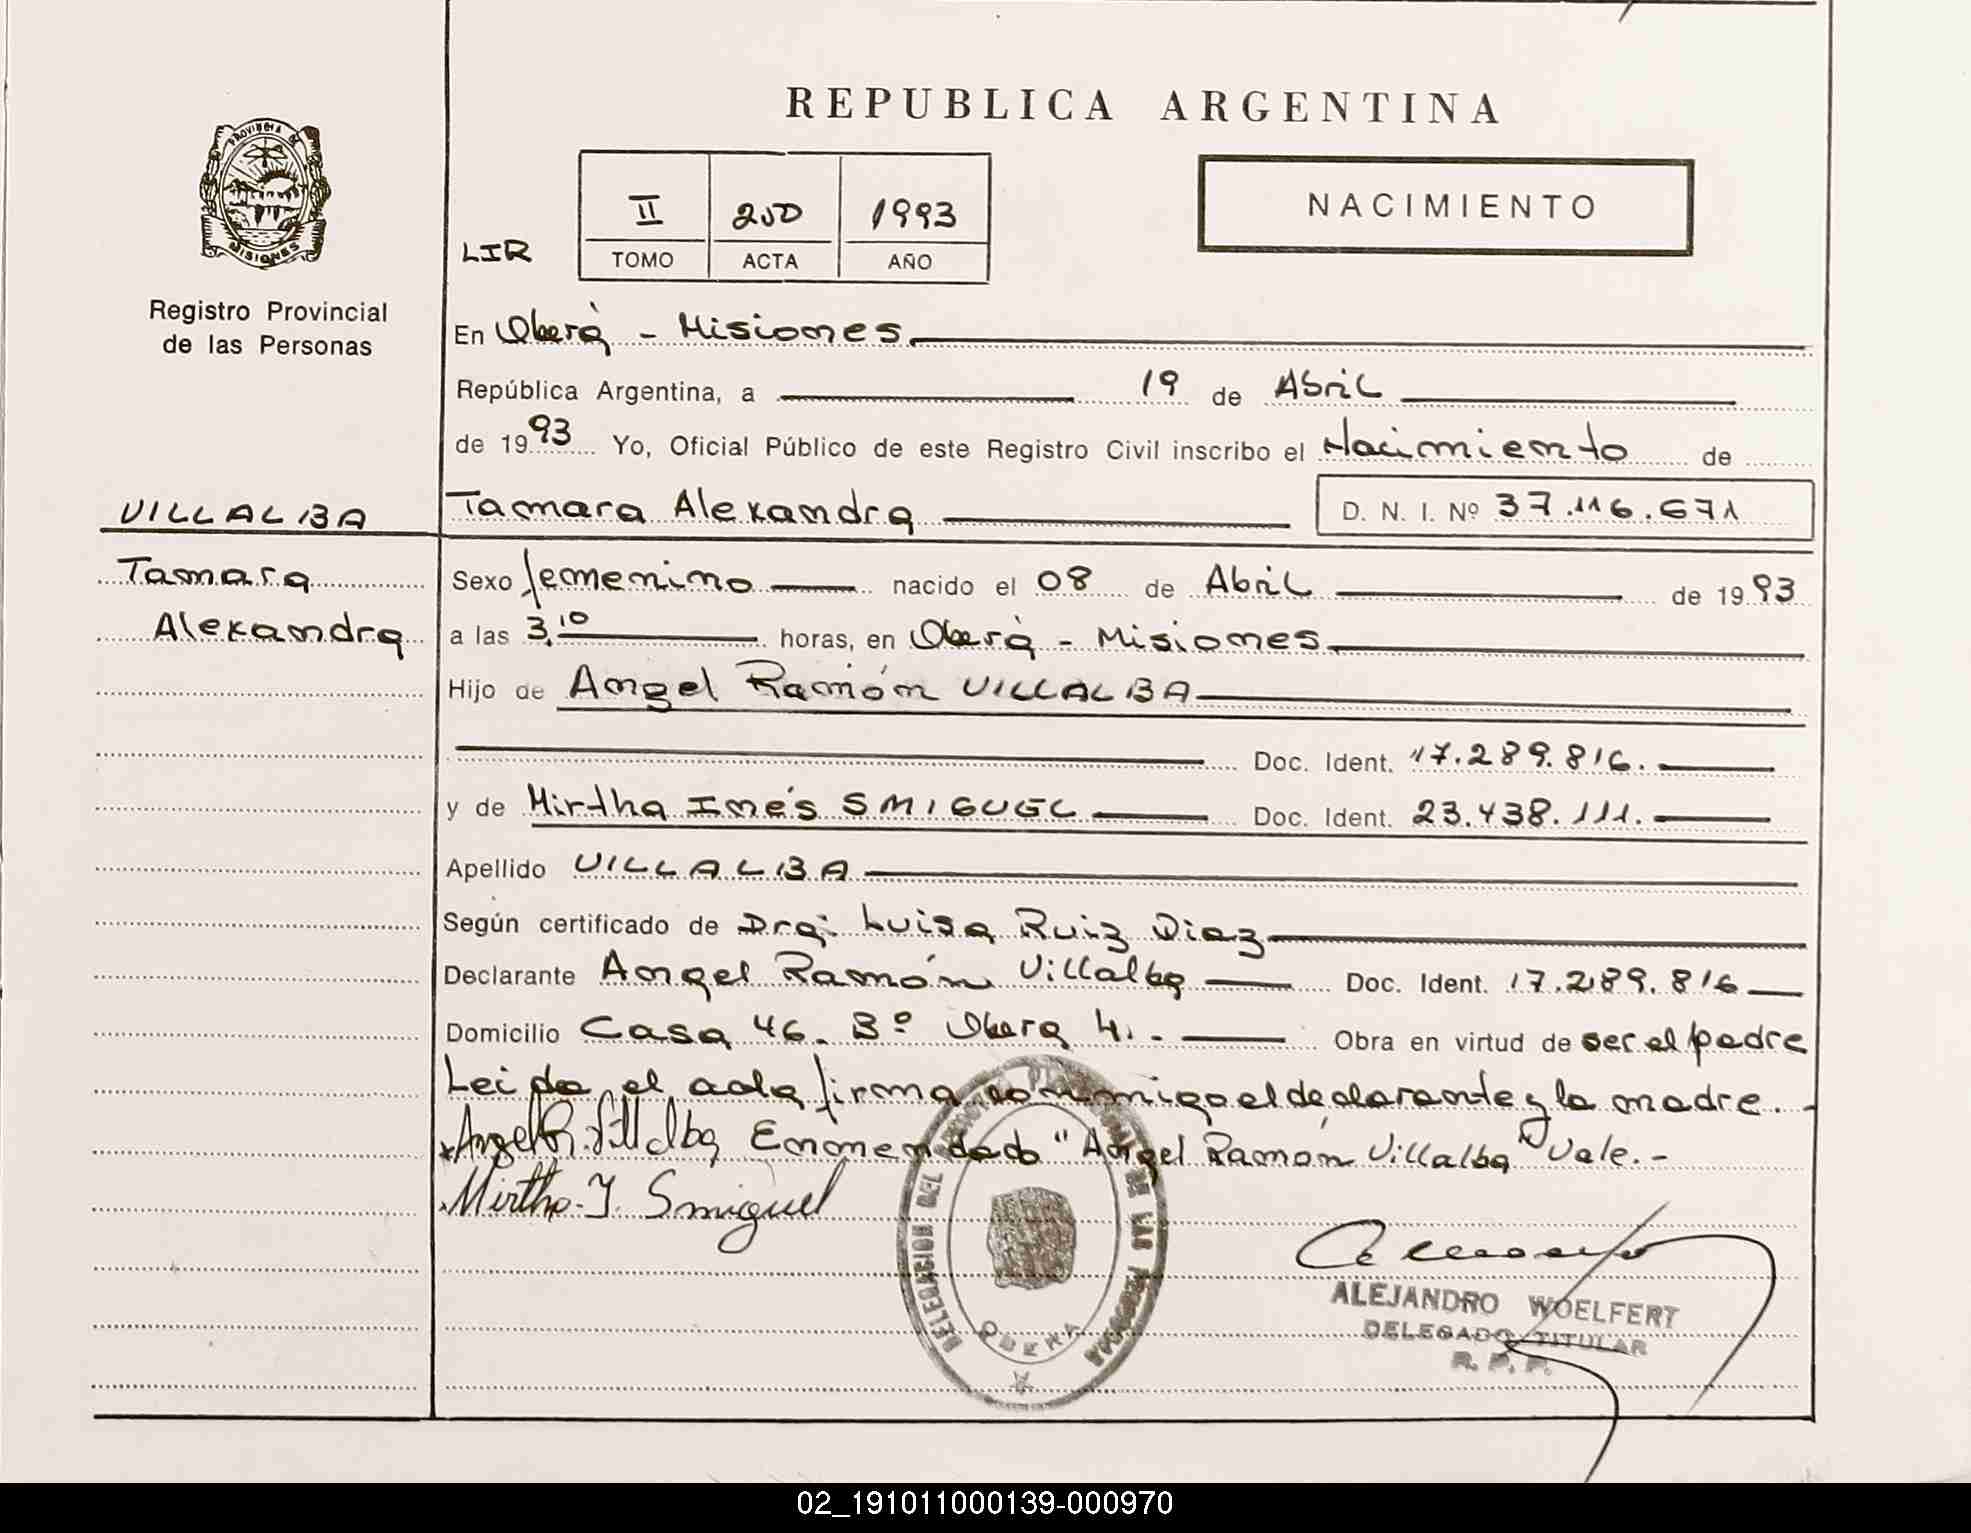 REPUBLICA ARGENTINA
PROVINCIA DE MISIONES
Registro Provincial
de las Personas
LIR
II 250 1993
TOMO ACTA AÑO
NACIMIENTO
En Oberà - Misiones
República Argentina, a 19 de Abril
de 1993 Yo, Oficial Público de este Registro Civil inscribo el Nacimiento de
VILLALBA
Tamara
Alexandra
Tamara Alexandra D. N. I. Nº 37.116.671
Sexo femenino nacido el 08 de Abril de 1993
a las 3,10 horas, en Oberà - Misiones
Hijo de Angel Ramón VILLALBA
Doc. Ident. 17.289.816.
y de Mirtha Inés SMIGUEL Doc. Ident. 23.438.111.
Apellido VILLALBA
Según certificado de Dra: Luisa Ruiz Diaz
Declarante Angel Ramón Villalba Doc. Ident. 17.289.816
Domicilio Casa 46. Bº Obera 4. - Obra en virtud de ser el padre
Leida el acta firma conmigo el declarante y la madre. -
Angel R. Villalba Enmendado "Angel Ramón Villalba" Vale. -
Mirtha I. Smiguel
DELEGACION DEL REGISTRO PROVINCIAL DE LAS PERSONAS
OBERA
ALEJANDRO WOELFERT
DELEGADO TITULAR
R. P. P.
02_191011000139-000970